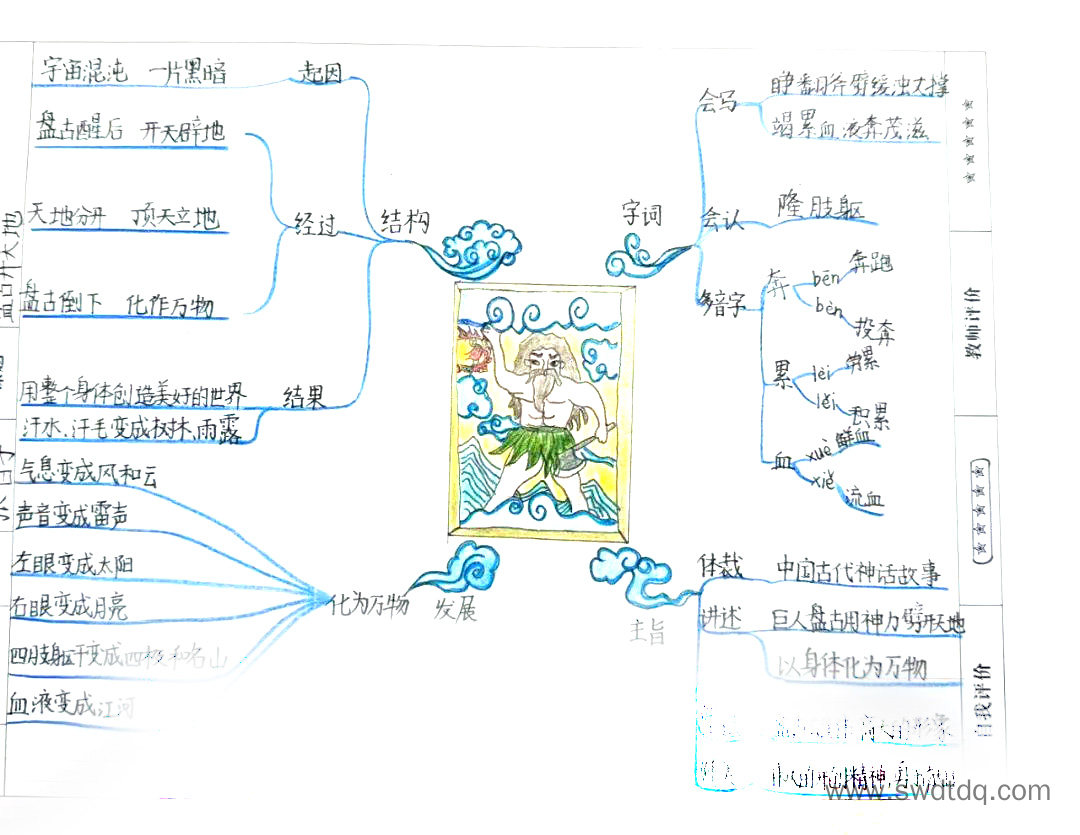 宇宙混沌 一片黑暗
起因
盘古醒后 开天辟地
天地分开 顶天立地
经过
结构
盘古倒下 化作万物
用整个身体创造美好的世界
结果
汗水、汗毛变成树木、雨露
气息变成风和云
声音变成雷声
左眼变成太阳
右眼变成月亮
四肢躯干变成四极和名山
血液变成江河
化为万物
发展
字词
会写
睁翻斧劈缓浊丈撑
竭累血液奔茂滋
会认
隆肢躯
多音字
奔
bēn
奔跑
bèn
投奔
累
lèi
lěi
积累
血
xuè
鲜血
xiě
流血
主旨
体裁
中国古代神话故事
讲述
巨人盘古用神力劈开天地
以身体化为万物
形象
精神
教师评价
自我评价
www.swdtdq.com